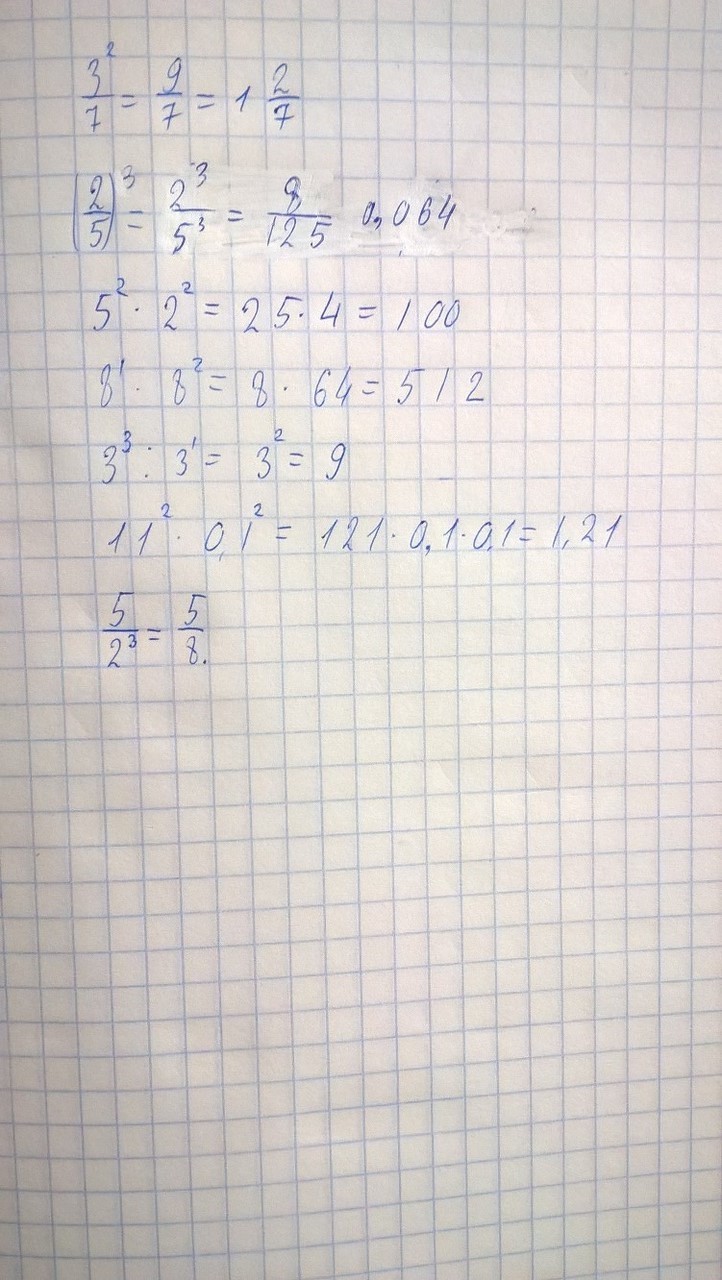 3²/7 = 9/7 = 1 2/7
(2/5)³ = 2³/5³ = 8/125 0,064
5² · 2² = 25 · 4 = 100
8¹ · 8² = 8 · 64 = 512
3³ : 3¹ = 3² = 9
11² · 0,1² = 121 · 0,1 · 0,1 = 1,21
5/2³ = 5/8.